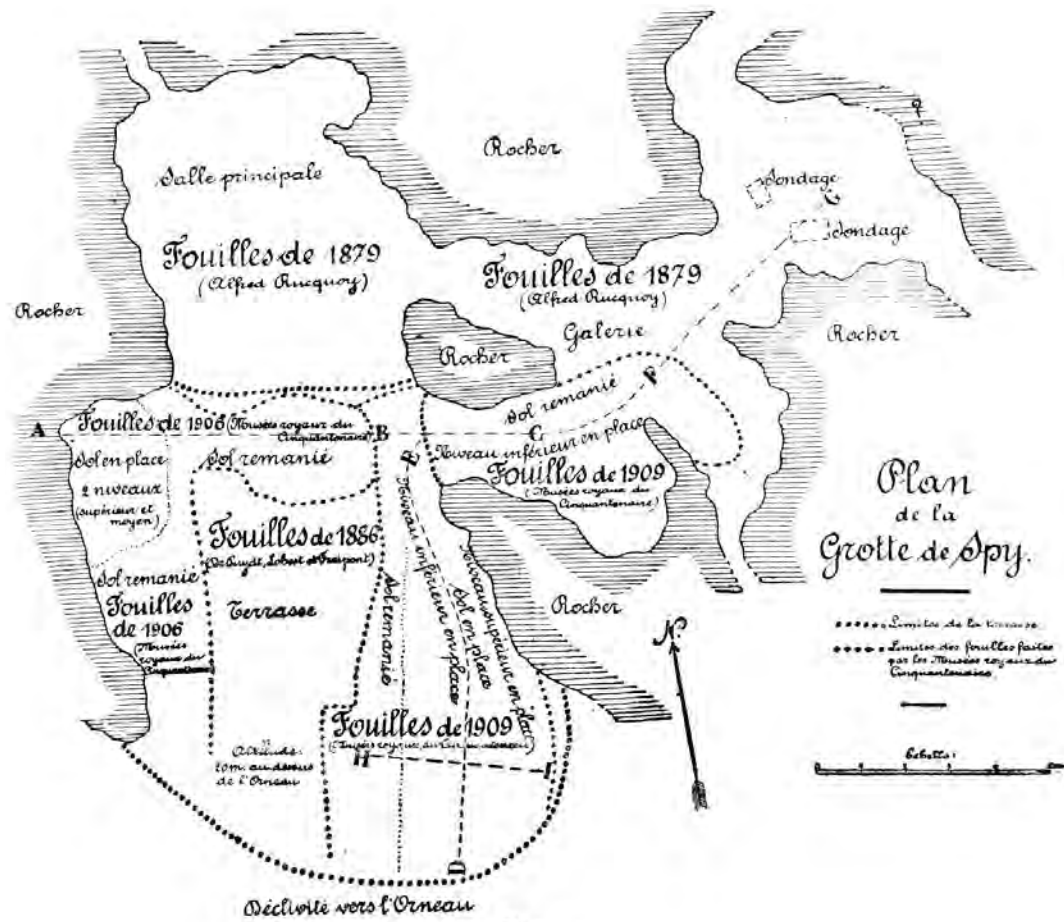 Rocher
Salle principale
Sondage
Sondage
G
Fouilles de 1879
(Alfred Rucquoy)
Fouilles de 1879
(Alfred Rucquoy)
Galerie
Rocher
Rocher
Rocher
Sol remanié
F
A
Fouilles de 1906 (Musées royaux du
Cinquantenaire)
B
C
E
Niveau inférieur en place
Fouilles de 1909
(Musées royaux du
Cinquantenaire)
Sol en place
2 niveaux
(supérieur et
moyen)
Sol remanié
Fouilles de 1886
(De Puydt, Lohest et Fraipont)
Terrasse
Sol remanié
Fouilles
de 1906
(Musées
royaux du
Cinquantenaire
Sol remanié
Niveau inférieur en place
Sol en place
Niveau supérieur en place
Rocher
Fouilles de 1909
H
I
D
Altitude:
10m. au dessus
de l'Orneau
Déclivité vers l'Orneau
N.
Plan
de la
Grotte de Spy.
Limites de la terrasse
Limites des fouilles faites
par les Musées royaux du
Cinquantenaire
Echelle: